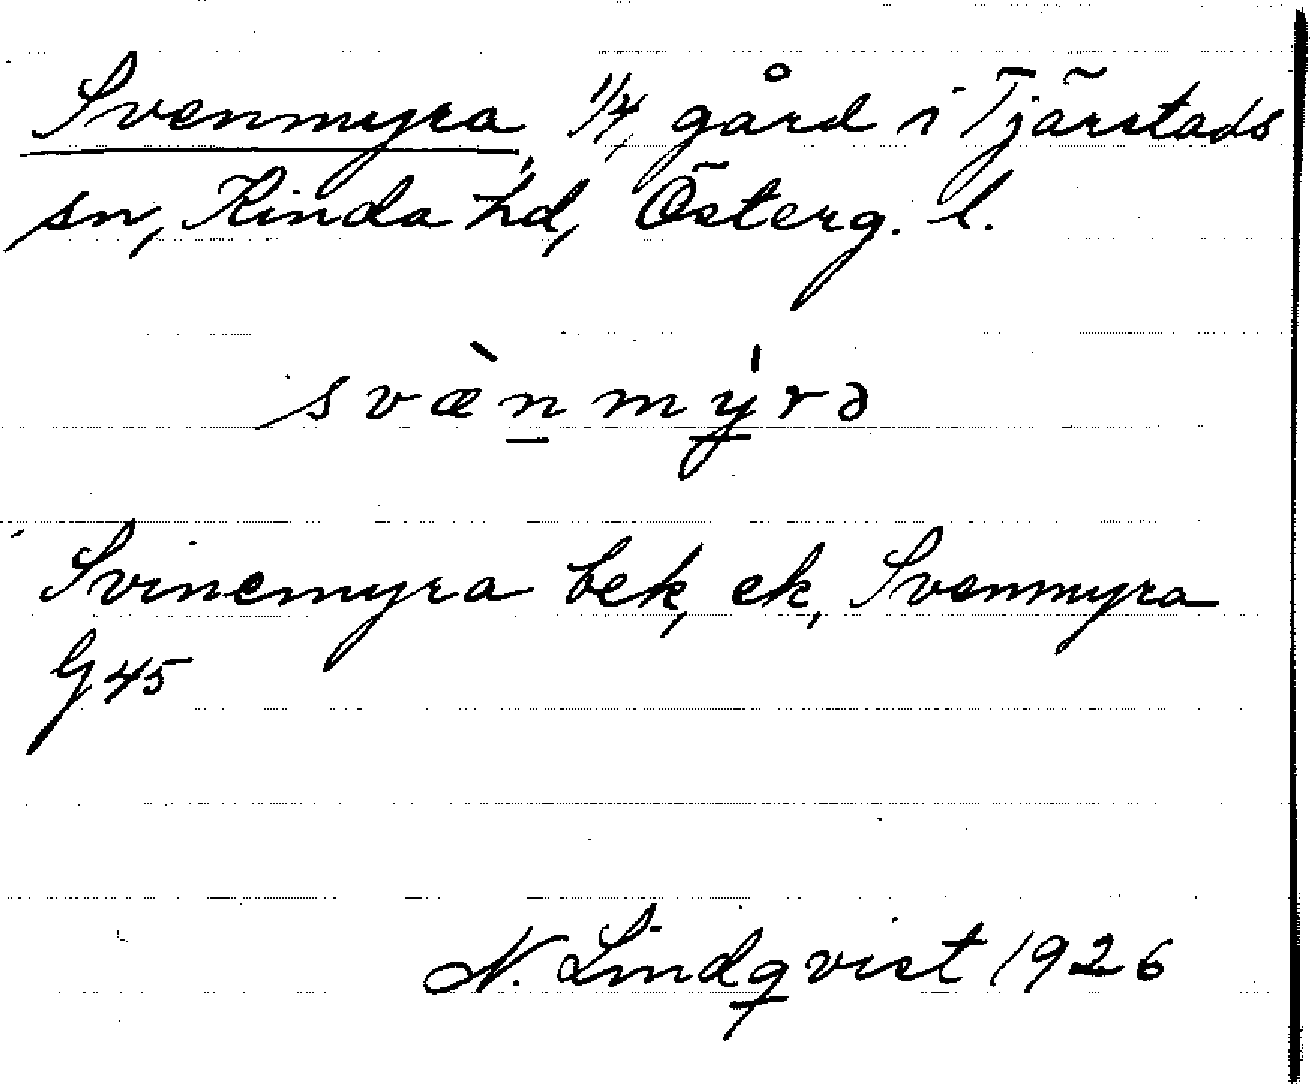 Svenmyra, 1/4, gård i Tjärstads
sn, Kinda hd, Österg. l.
svæ̀n̲mý̲rə
Svinemyra bek, ek, Svenmyra
G 45
N. Lindqvist 1926